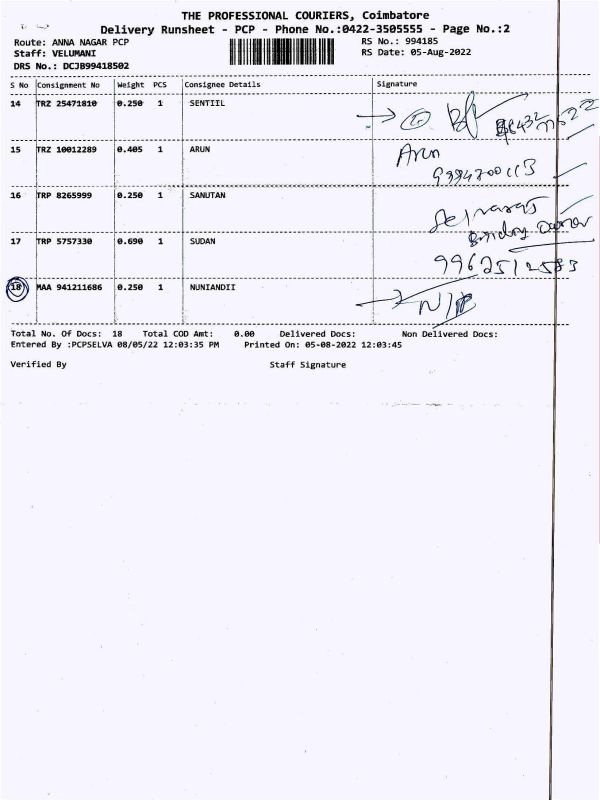 THE PROFESSIONAL COURIERS, Coimbatore
Delivery Runsheet - PCP - Phone No.:0422-3505555 - Page No.:2
Route: ANNA NAGAR PCP RS No.: 994185
Staff: VELUMANI RS Date: 05-Aug-2022
DRS No.: DCJB99418502
S No Consignment No Weight PCS Consignee Details Signature
14 TRZ 25471810 0.250 1 SENTIIL
15 TRZ 10012289 0.405 1 ARUN Arun
16 TRP 8265999 0.250 1 SANUTAN
17 TRP 5757330 0.690 1 SUDAN
9962512583
18 MAA 941211686 0.250 1 NUNIANDII
Total No. Of Docs: 18 Total COD Amt: 0.00 Delivered Docs: Non Delivered Docs:
Entered By :PCPSELVA 08/05/22 12:03:35 PM Printed On: 05-08-2022 12:03:45
Verified By Staff Signature